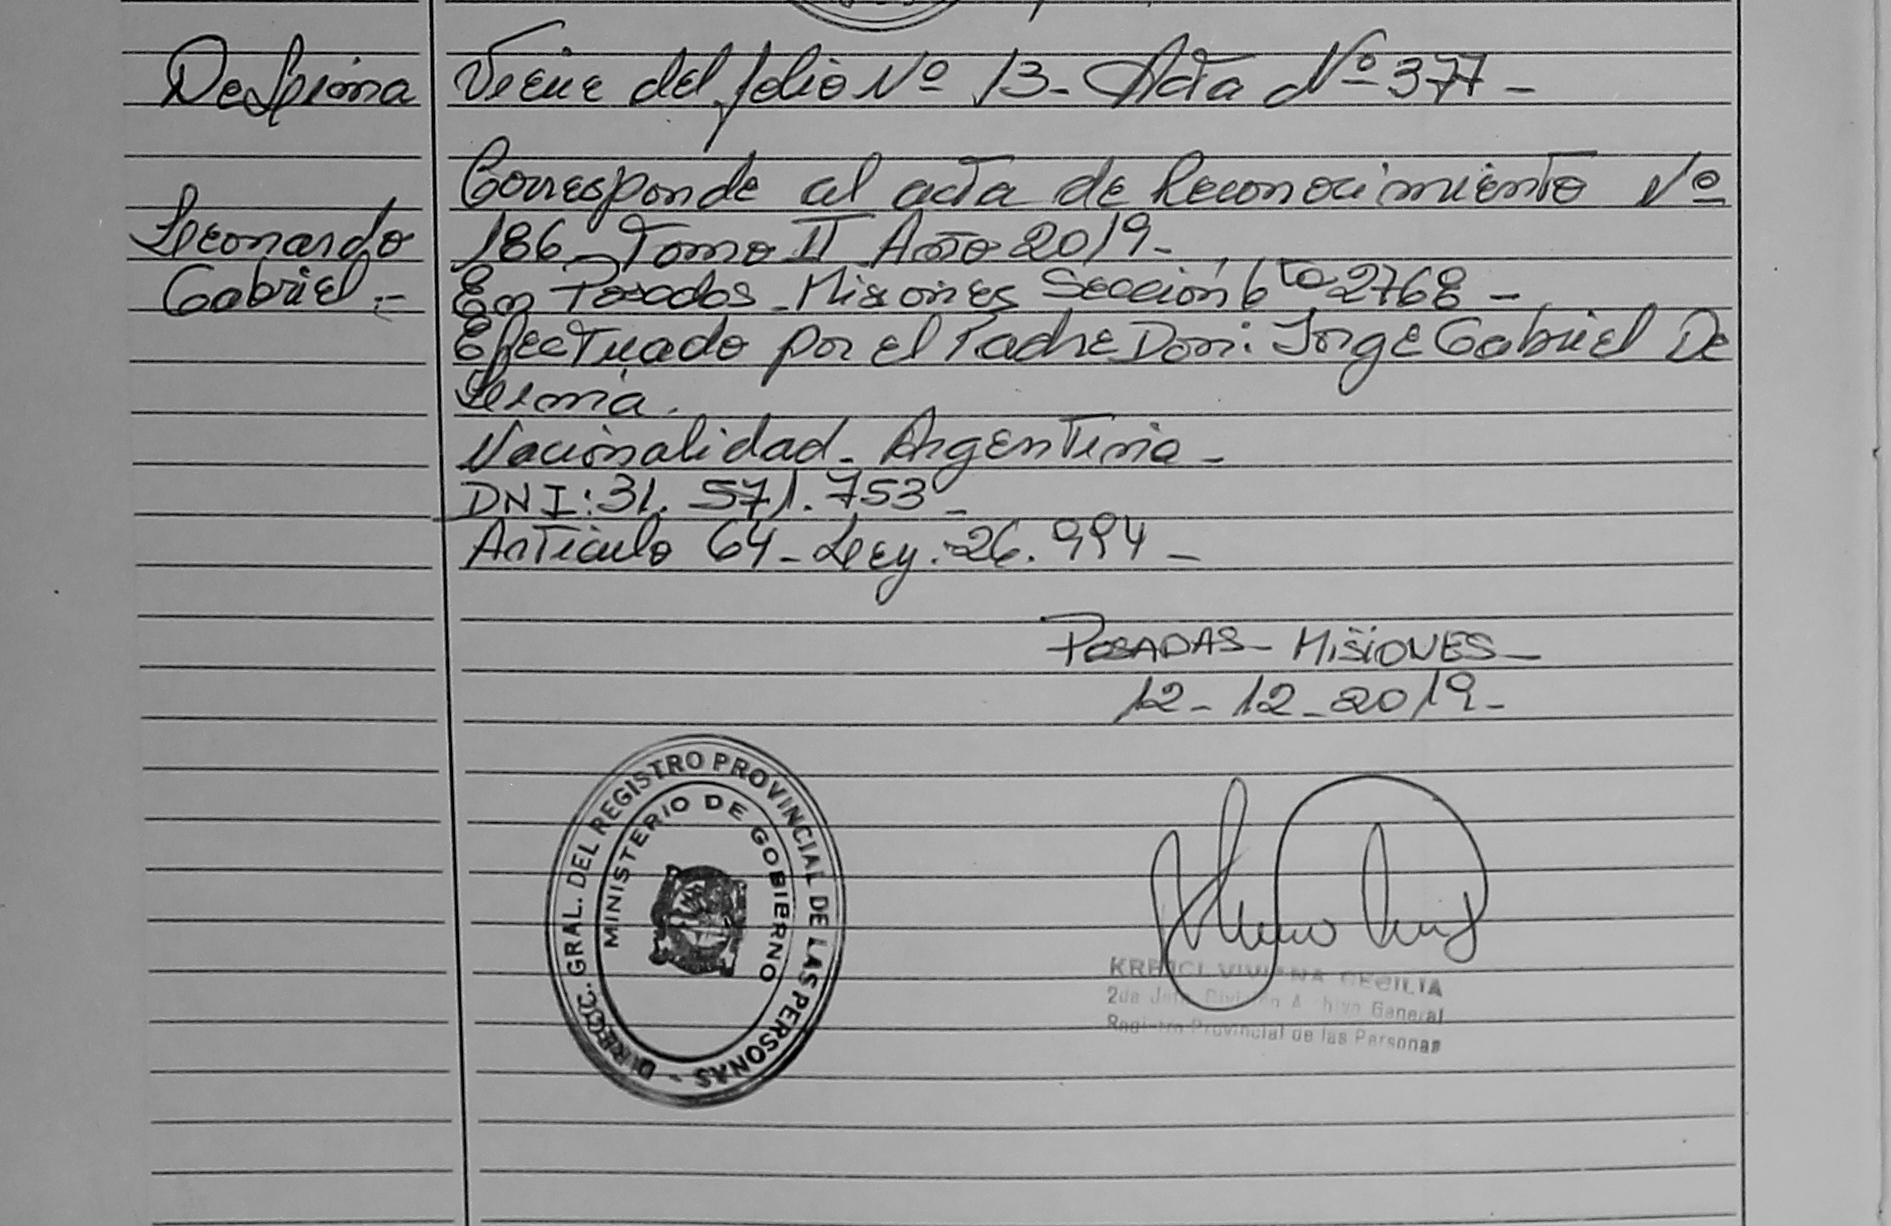 Viene del folio Nº 13- Acta Nº 377-
Corresponde al acta de Reconocimiento Nº
Leonardo
186- Tomo II Año 2019-
Gabriel.-
En Posadas-Misiones Sección 6ta 2768-
Efectuado por el Padre Don: Jorge Gabriel De
Nacionalidad- Argentina-
DNI: 31.571.753-
Articulo 64- Ley: 26.994-
POSADAS- MISIONES-
12-12-2019-
DIRECC. GRAL. DEL REGISTRO PROVINCIAL DE LAS PERSONAS -
MINISTERIO DE GOBIERNO
VIVIANA CECILIA
2da Jefa División Archivo General
Registro Provincial de las Personas